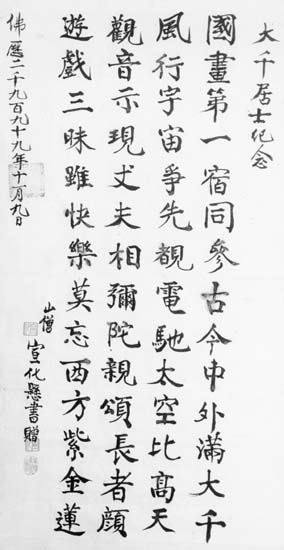 大千居士紀念
國畫第一宿同參古今中外滿大千
風行宇宙爭先覩電馳太空比高天
觀音示現丈夫相彌陀親頌長者顏
遊戲三昧雖快樂莫忘西方紫金蓮
山僧
宣化懸書贈
佛曆二千九百九十九年十一月九日